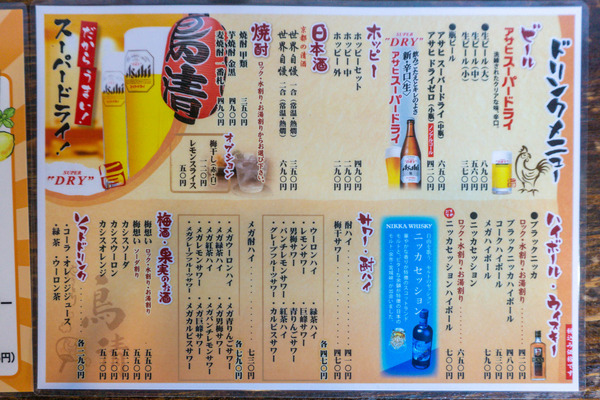 ドリンクメニュー
ビール
アサヒスーパードライ
洗練されたクリアな味、辛口。
・生ビール（大） 八九〇
・生ビール（中）
・生ビール（小）
●瓶ビール
アサヒ スーパードライ（中瓶） 六五〇
アサヒ ドライゼロ（小瓶） ノンアルコール 四二〇
飲みごたえとキレのよさ
新・辛口〈生〉
アサヒスーパードライ
SUPER "DRY"
ホッピー
・ホッピーセット 四九〇
・ホッピー 中 二九〇
・ホッピー 外
日本酒
京都の清酒
・世界自慢 一合（常温・熱燗） 三五〇
・世界自慢 二合（常温・熱燗） 六九〇
焼酎
ロック・水割り・お湯割りからお選び下さい
・焼酎 甲類 三五〇
・芋焼酎 金黒 四九〇
・麦焼酎 一番札 四九〇
オプション
・梅干し（赤・白） 一二〇
・レモンスライス 五〇
鳥清
だからうまい！
スーパードライ！
Asahi
SUPER "DRY"
ハイボール・ウィスキー
●ブラックニッカ
ロック・水割り・お湯割り 四二〇
・ブラックニッカハイボール 四八〇
・コークハイボール 五三〇
・メガハイボール 七九〇
●ニッカセッション
ロック・水割り・お湯割り 六五〇
・ニッカセッションハイボール 七〇〇
NIKKA WHISKY
ニッカ セッション
サワー・酎ハイ
・酎ハイ 四二〇
・梅干サワー 四七〇
・ウーロンハイ ・緑茶ハイ 各四七〇
・男梅サワー ・巨峰サワー
・ハチミツレモンサワー ・青りんごサワー
・トマトハイ ・紅茶ハイ
・グレープフルーツサワー ・カルピスサワー
・メガ酎ハイ 七三〇
・メガウーロンハイ ・メガ青りんごサワー 各七九〇
・メガ緑茶ハイ ・メガ男梅サワー
・メガ紅茶ハイ ・メガハチミツレモンサワー
・メガトマトハイ ・メガ巨峰サワー
・メガグレープフルーツサワー ・メガカルピスサワー
梅酒・果実のお酒
・梅想い ロック・水割り・お湯割り 五五〇
・梅想い ソーダ割り 五五〇
・カシスソーダ 五二〇
・カシスウーロン 五二〇
・カシスオレンジ 五五〇
ソフトドリンク
・コーラ ・オレンジジュース 各二九〇
・緑茶 ・ウーロン茶